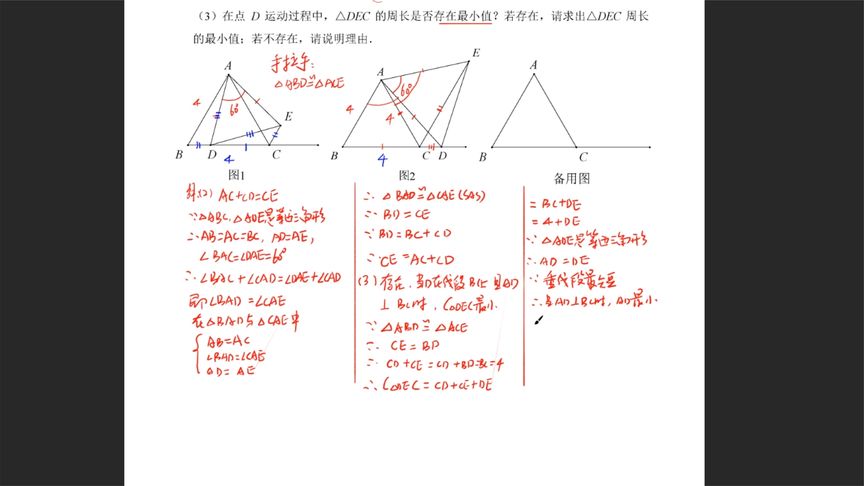 （3）在点 D 运动过程中，△DEC 的周长是否存在最小值？若存在，请求出△DEC 周长
的最小值；若不存在，请说明理由．
手拉手：
△ABD≌△ACE
A
4
60°
E
B
D
4
C
图1
A
E
60°
4
4
B
4
C
D
图2
A
B
C
备用图
解(2) AC+CD=CE
∵△ABC、△ADE是等边三角形
∴AB=AC=BC，AD=AE，
∠BAC=∠DAE=60°
∴∠BAC+∠CAD=∠DAE+∠CAD
即∠BAD=∠CAE
在△BAD与△CAE中
AB=AC
∠BAD=∠CAE
AD=AE
∴△BAD≌△CAE(SAS)
∴BD=CE
∵BD=BC+CD
∴CE=AC+CD
(3)存在，当D在线段BC上且AD
⊥BC时，C△DEC最小.
∵△ABD≌△ACE
∴CE=BD
∴CD+CE=CD+BD=BC=4
∴C△DEC=CD+CE+DE
=BC+DE
=4+DE
∵△ADE是等边三角形
∴AD=DE
∵垂线段最短
∴当AD⊥BC时，AD最小